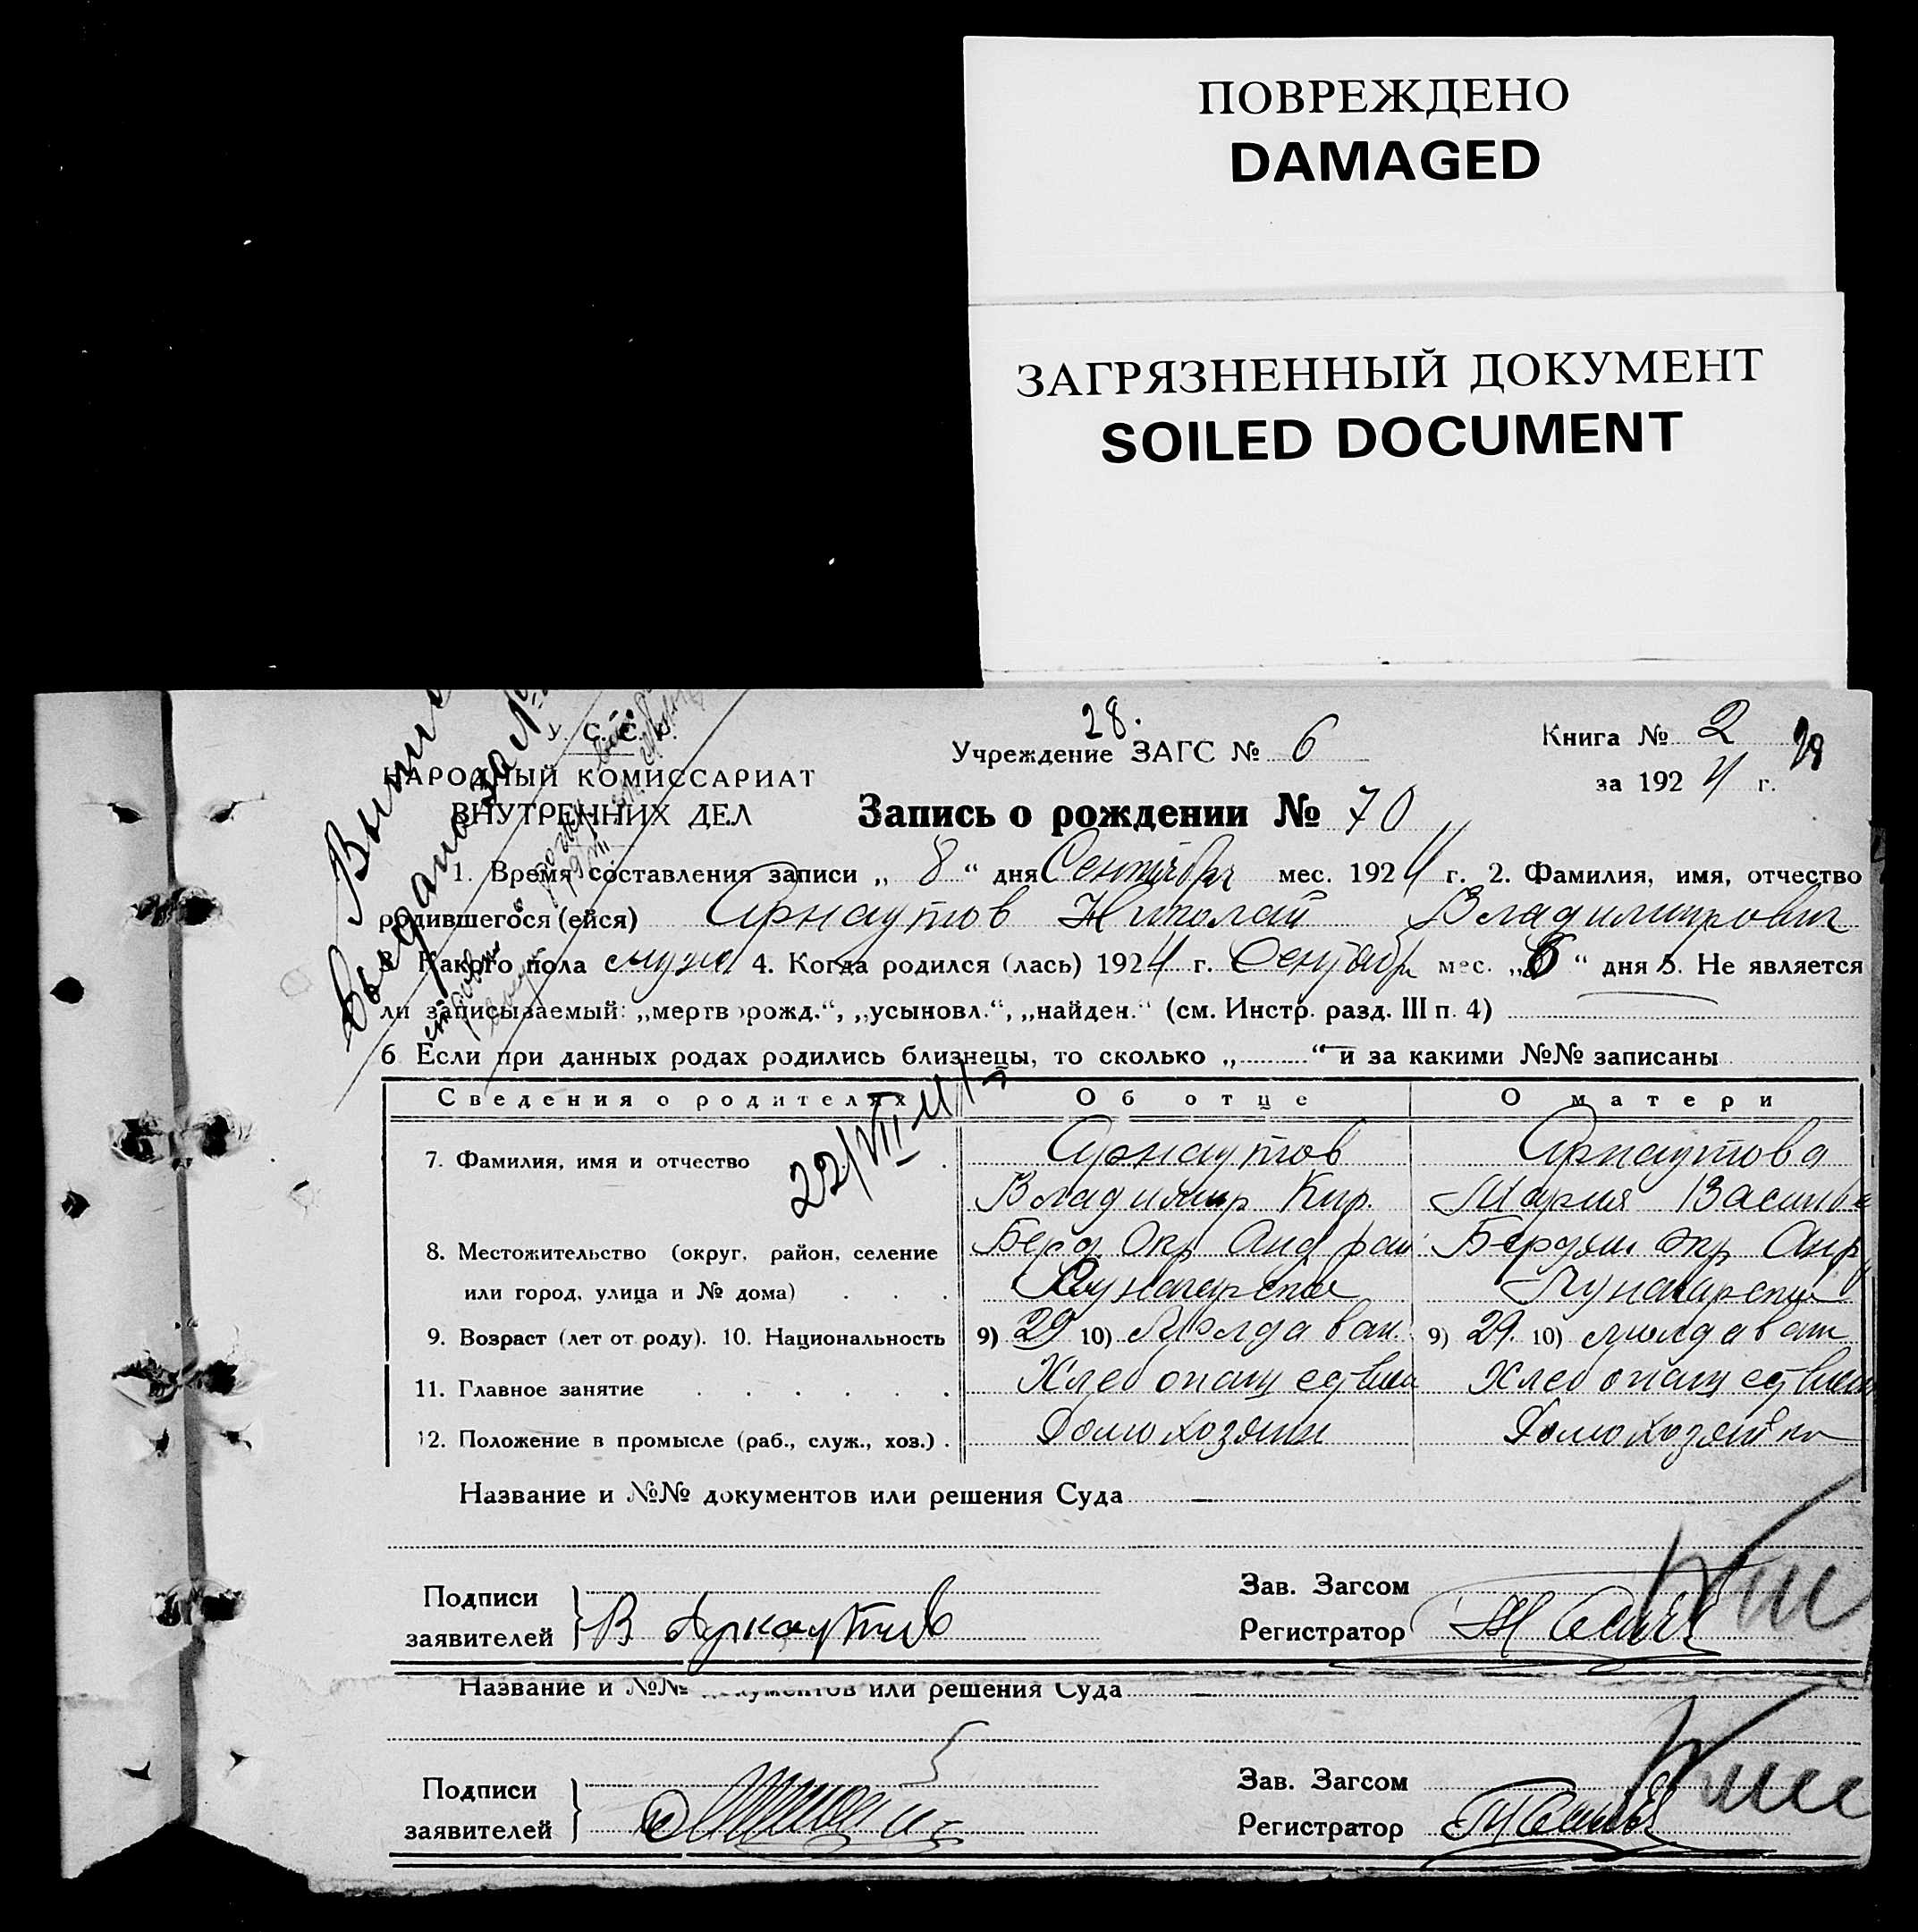 ПОВРЕЖДЕНО
DAMAGED
ЗАГРЯЗНЕННЫЙ ДОКУМЕНТ
SOILED DOCUMENT
У. С. С. Р.
НАРОДНЫЙ КОМИССАРИАТ
ВНУТРЕННИХ ДЕЛ
28.
Учреждение ЗАГС № 6
Книга № 2
за 1924 г.
Запись о рождении № 70
1. Время составления записи „ 8 “ дня Сентября мес. 1924 г. 2. Фамилия, имя, отчество
родившегося (ейся) Арнаутов Николай Владимирович
3. Какого пола мужс. 4. Когда родился (лась) 1924 г. Сентябр мес. „6“ дня 5. Не является
ли записываемый: „мертворожд.“, „усыновл.“, „найден.“ (см. Инстр. разд. III п. 4)
6. Если при данных родах родились близнецы, то сколько „ “ и за какими №№ записаны
выдано за №
22/VII-41
Сведения о родителях Об отце О матери
7. Фамилия, имя и отчество Арнаутов Арнаутова
Владимир Кир. Мария Васильев
8. Местожительство (округ, район, селение Берд Окр Анд рай Бердян окр Андр
или город, улица и № дома) Луначарское Луначарское
9. Возраст (лет от роду). 10. Национальность 9) 29 10) Молдаван. 9) 29. 10) молдаван
11. Главное занятие Хлебопашеств Хлебопашеств
12. Положение в промысле (раб., служ., хоз.) Домохозяин Домохозяйка
Название и №№ документов или решения Суда
Подписи
заявителей В Арнаутов
Зав. Загсом
Регистратор
Название и №№ документов или решения Суда
Подписи
заявителей
Зав. Загсом
Регистратор